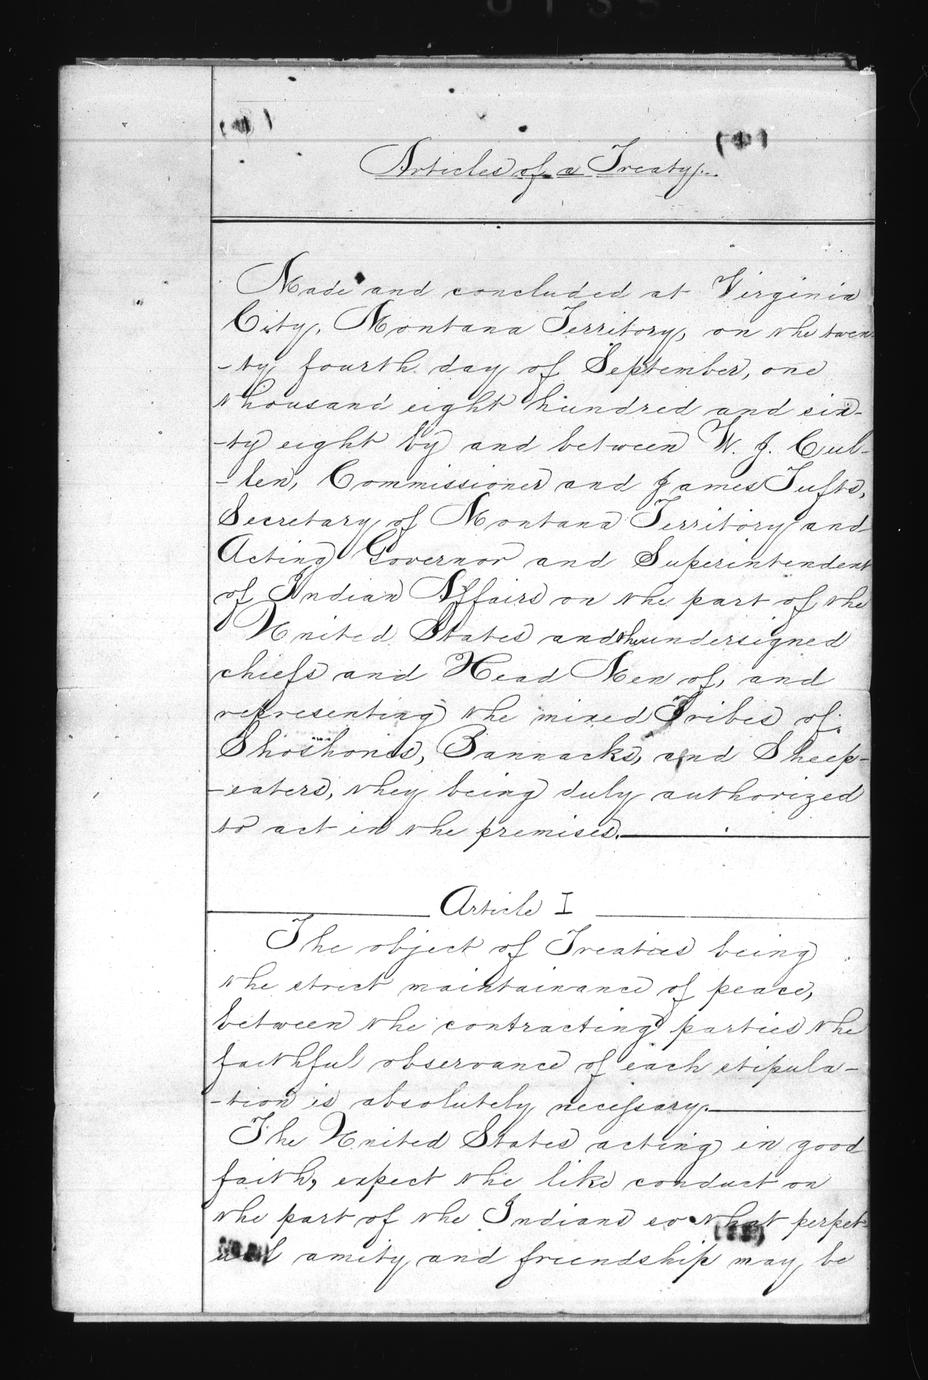 Articles of a Treaty.
Made and concluded at Virginia
City, Montana Territory, on the twen
-ty fourth day of September, one
thousand eight hundred and six-
-ty eight by and between W. J. Cul-
-len, Commissioner and James Tufts,
Secretary of Montana Territory and
Acting Governor and Superintendent
of Indian Affairs on the part of the
United States and the undersigned
chiefs and Head Men of, and
representing the mixed Tribes of
Shoshones, Bannacks, and Sheep-
-eaters, they being duly authorized
to act in the premises.
Article I
The object of Treaties being
the strict maintainance of peace,
between the contracting parties the
faithful observance of each stipula-
-tion is absolutely necessary.
The United States acting in good
faith, expect the like conduct on
the part of the Indians so that perpet
ual amity and friendship may be